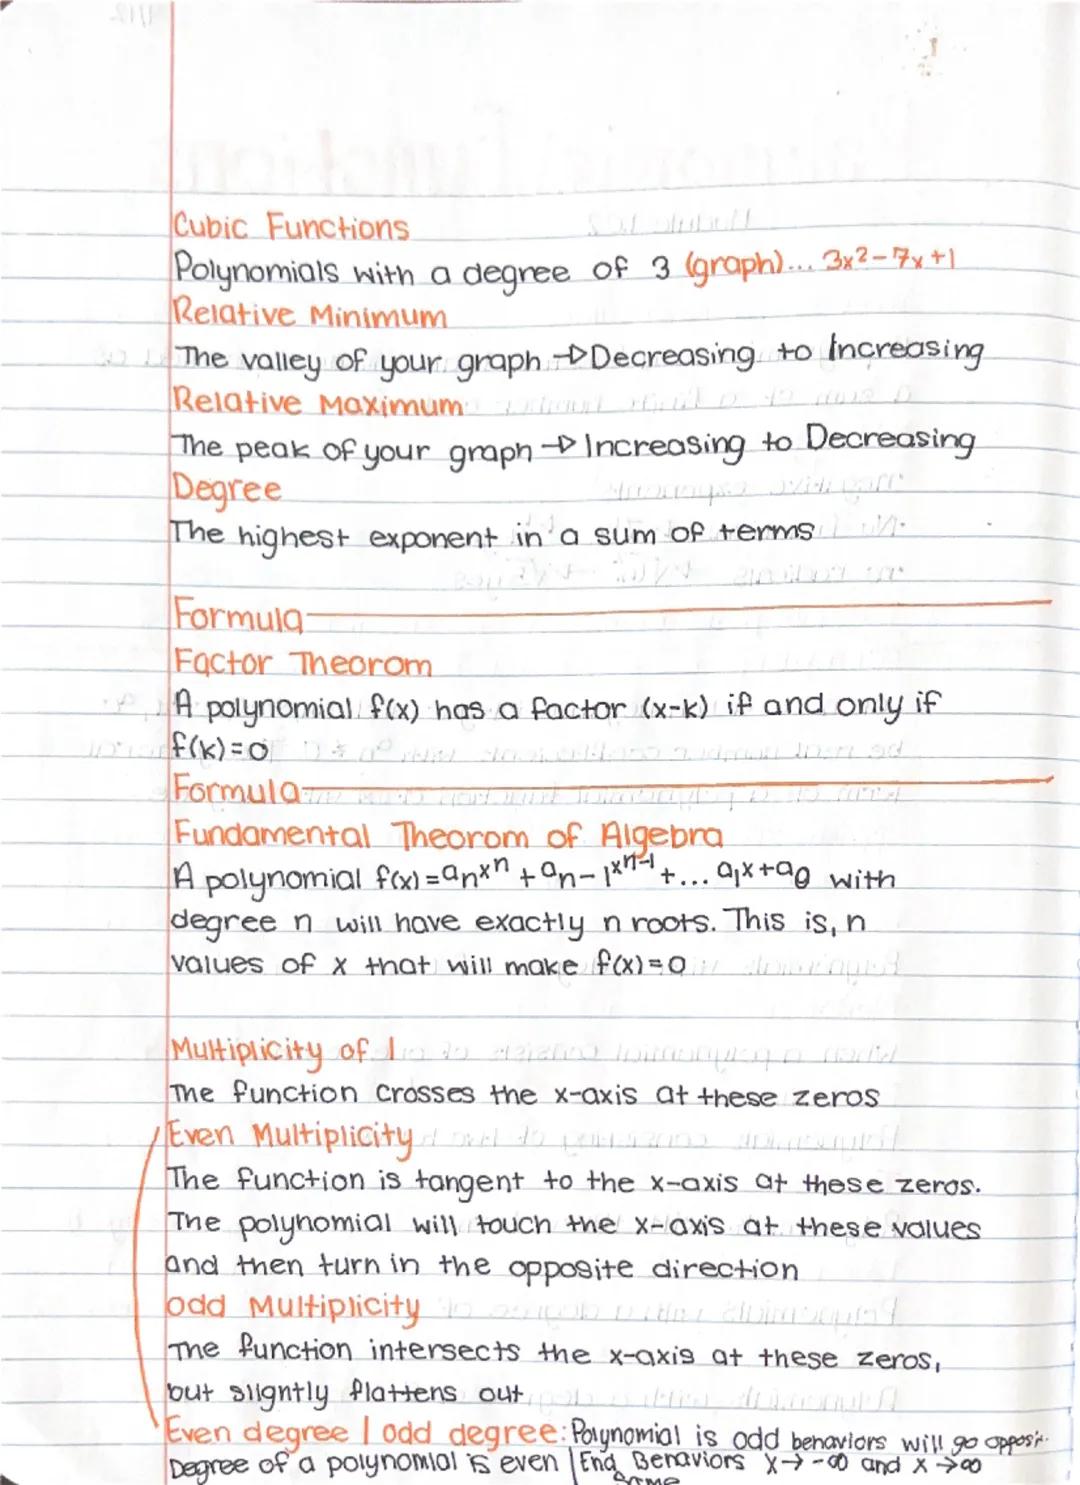 Cubic Functions
Polynomials with a degree of 3 (graph)... 3x²-7x+1
Relative Minimum
The valley of your graph → Decreasing to Increasing
Relative Maximum
The peak of your graph → Increasing to Decreasing
Degree
The highest exponent in a sum of terms
Formula
Factor Theorom
A polynomial f(x) has a factor (x-k) if and only if
f(k)=0
Formula
Fundamental Theorom of Algebra
A polynomial f(x)=aₙxⁿ+aₙ-1xⁿ⁻¹+...a₁x+a₀ with
degree n will have exactly n roots. This is, n
values of x that will make f(x)=0
Multiplicity of 1
The function crosses the x-axis at these zeros
Even Multiplicity
The function is tangent to the x-axis at these zeros.
The polynomial will touch the x-axis at these values
and then turn in the opposite direction
odd Multiplicity
The function intersects the x-axis at these zeros,
but slightly flattens out
Even degree | odd degree: Polynomial is odd behaviors will go
Degree of a polynomial is even | End Behaviors x→-∞ and x→∞